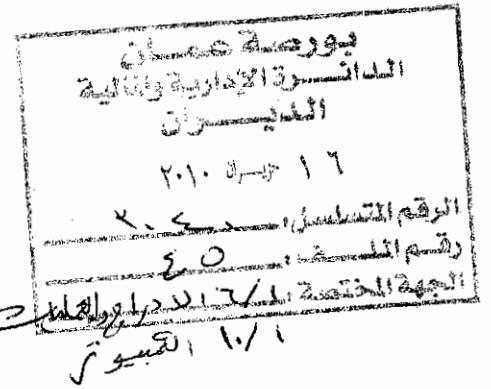 بورصة عمان
الدائرة الإدارية والمالية
الديوان
١٦ حزيران ٢٠١٠
الرقم المتسلسل:
رقم الملف: ٤٥
الجهة المختصة: ٦/١ الادراج والعمليات
١٠/١ الكمبيوتر